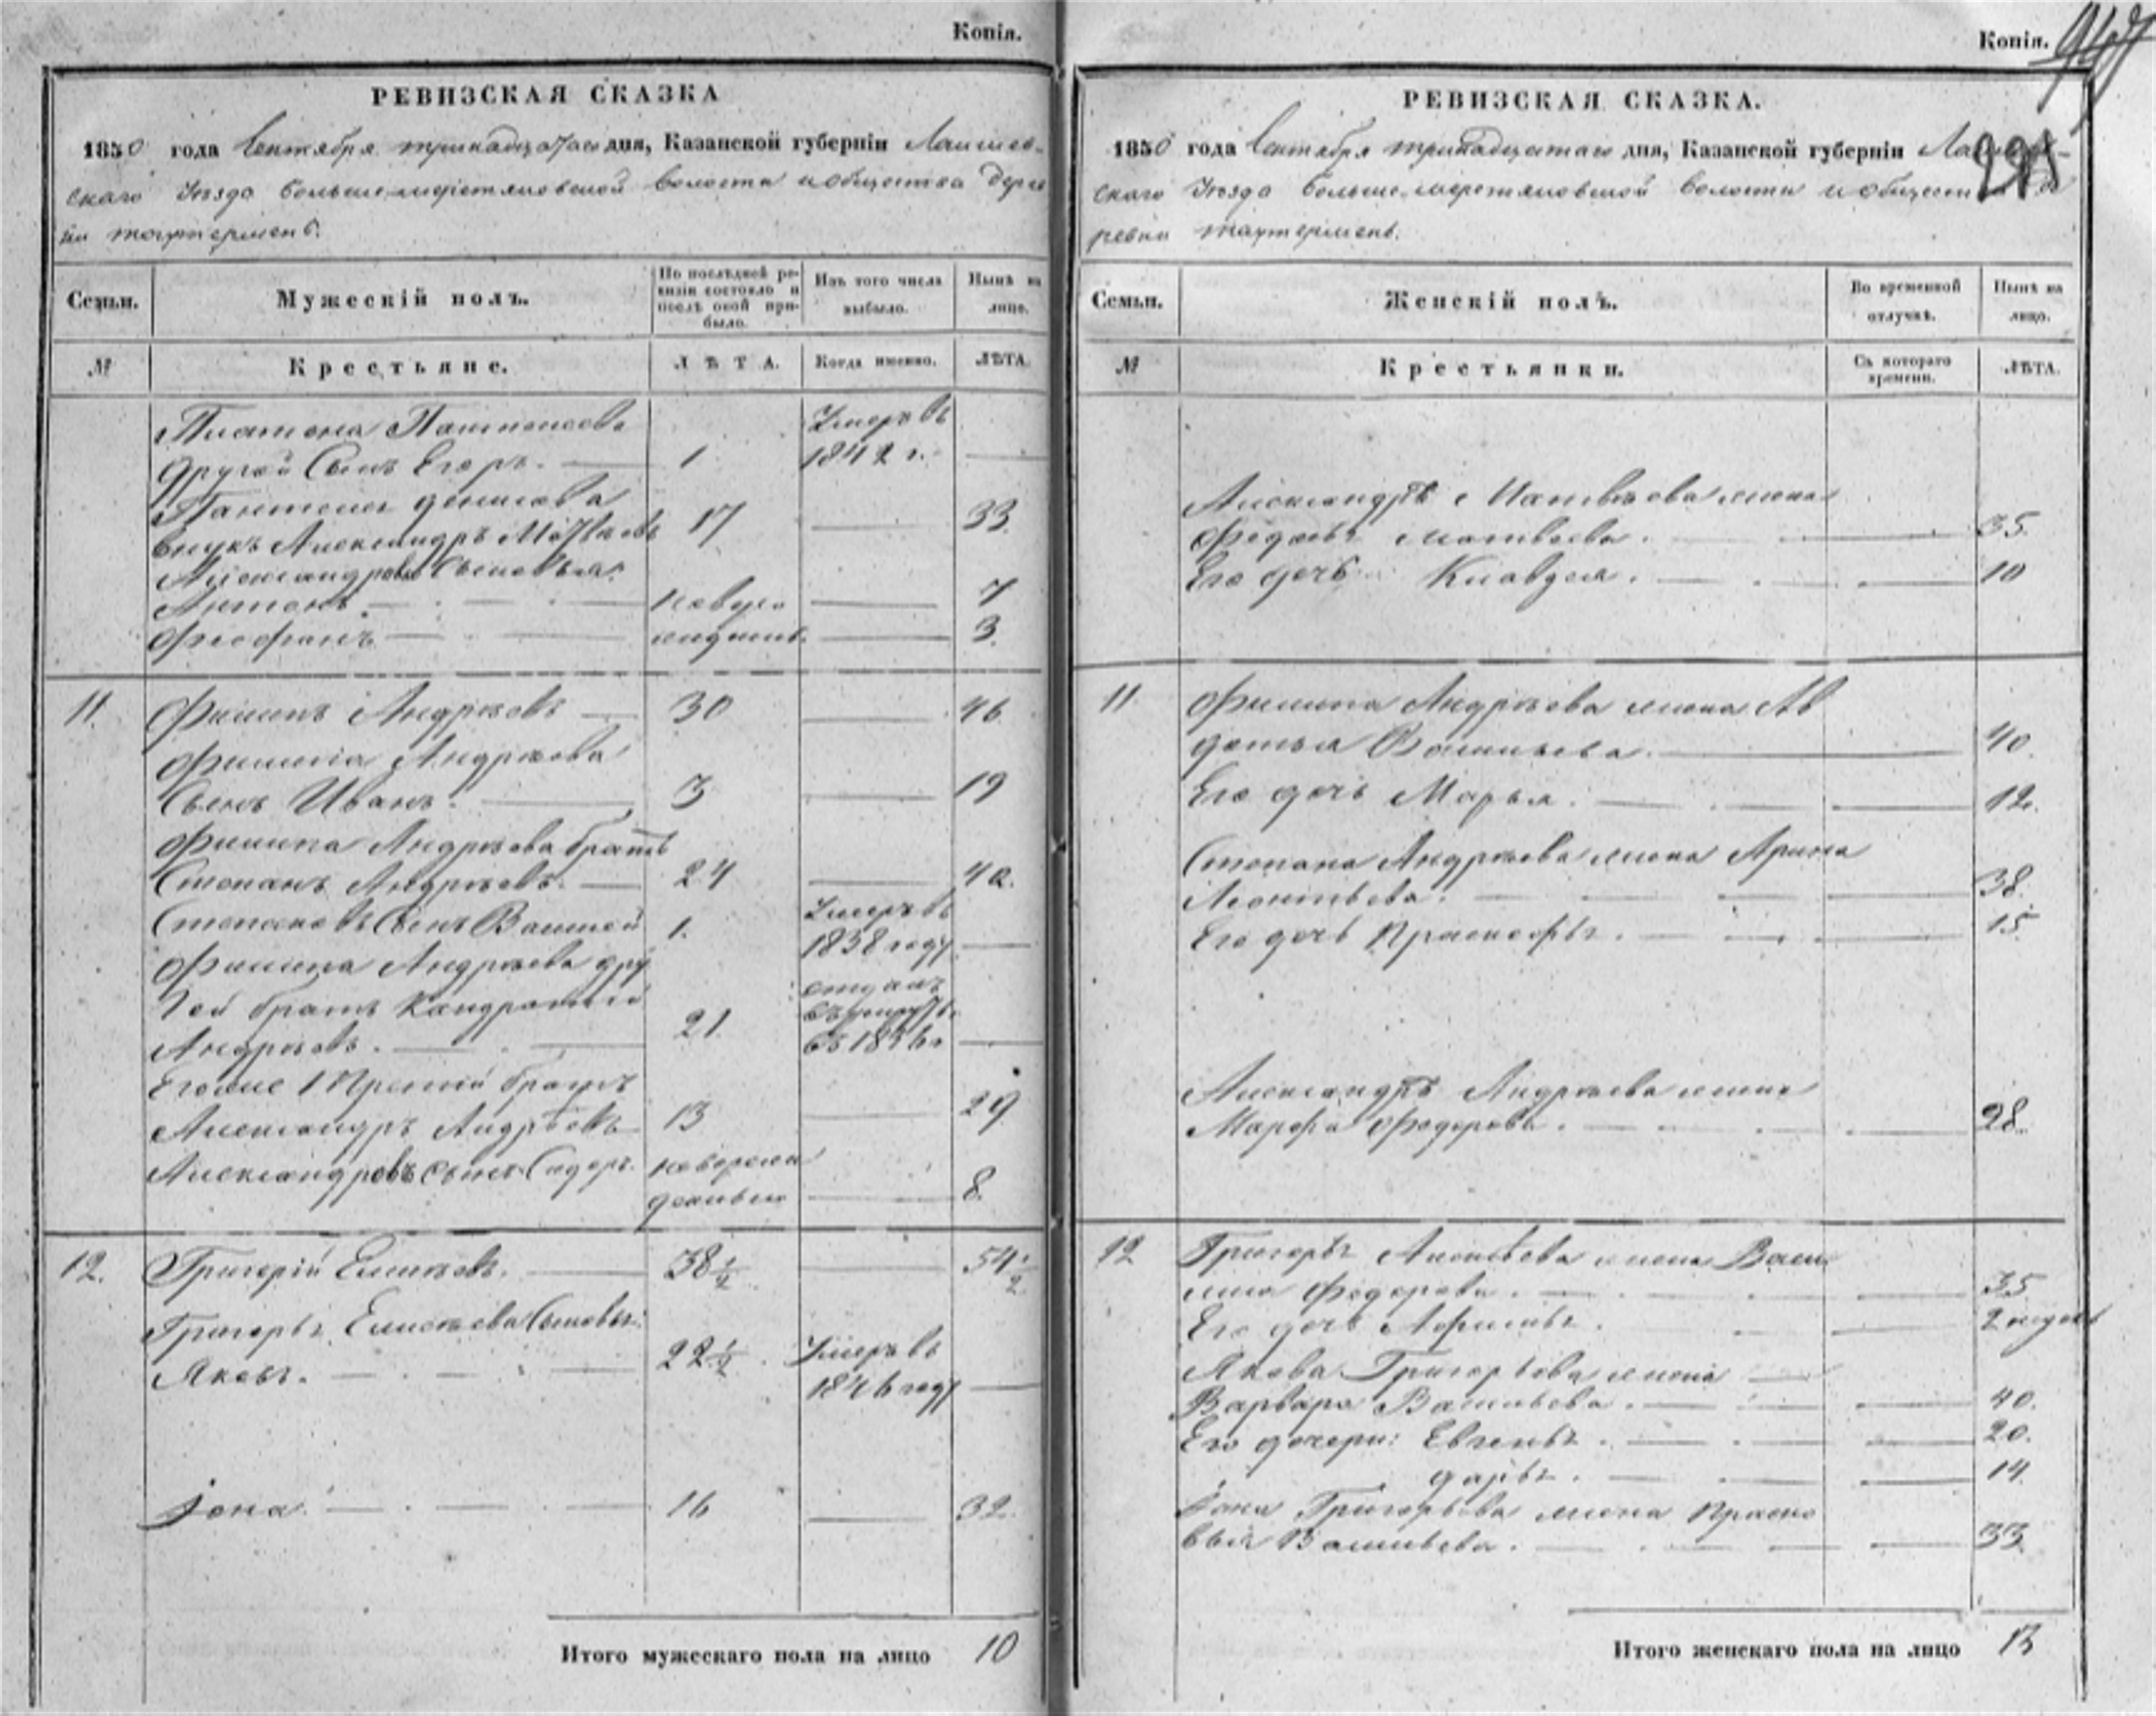 Копія.
РЕВИЗСКАЯ СКАЗКА
1850 года Сентября тринадцатаго дня, Казанской губерніи Лаишев-
скаго Уѣзда Больше-меретяковской волости и общества дерев
ни таутермень.
Семьи.
Мужескій полъ.
По послѣдней ре-
визіи состояло и
послѣ оной при-
было.
Изъ того числа
выбыло.
Нынѣ на
лицо.
№
Крестьяне.
ЛѢТА.
Когда именно.
ЛѢТА.
Платона
Умеръ въ
другой Сынъ Егоръ. 1 1842 г.
внукъ Александръ Матвѣевъ 17 33
Александровы Сыновья:
Антонъ. 7
Феофанъ 3.
11. Филипъ Андрѣевъ 30 46
Филипа Андрѣева
Сынъ Иванъ. 3 19
Филипа Андрѣева братъ
Степанъ Андрѣевъ. 24 40.
Умеръ въ
Степановъ Сынъ Василей 1. 1838 году
Филипа Андрѣева дру
гой братъ Кандратій отданъ
21.
Андрѣевъ.
Егоже Третій братъ
Александръ Андрѣевъ 13 29
Александровъ сынъ Сидоръ. 8.
12. Григорій Елисѣевъ. 38 1/2 54 1/2
Григорья Елисѣева Сыновья:
Яковъ. 22 1/2. Умеръ въ
1846 году
Iона. 16 32.
Итого мужескаго пола на лицо 10
Копія.
РЕВИЗСКАЯ СКАЗКА.
1850 года Сентября тринадцатаго дня, Казанской губерніи
скаго Уѣзда Больше-меретяковской волости и
ревни таутермень.
Семьи.
Женскій полъ.
Во временной
отлучкѣ.
Нынѣ на
лицо.
№
Крестьянки.
Съ котораго
времени.
ЛѢТА.
Александра Матвѣева жена
матвеева. 35.
Его дочь Клавдея. 10
11 Филипа Андрѣева жена Ав
дотья Васильева. 40.
Его дочь Марья. 12.
Степана Андрѣева жена Арина
Леонтьева. 38.
Его дочь Прасковья. 15.
Александра Андрѣева жена
Марфа Федорова. 28.
12 Григорья жена Васи
лиса Федорова. 35
Его дочь 2 недель
Якова Григорьева жена
Варвара Васильева. 40.
Его дочери: Евгенья. 20.
Дарья. 14.
Iона Григорьева жена Праско
вья Васильева. 33.
Итого женскаго пола на лицо 13